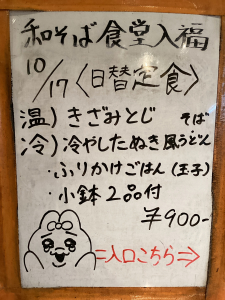 和そば食堂入福
10/17〈日替定食〉
温）きざみとじ そば
冷）冷やしたぬき風うどん
・ふりかけごはん（玉子）
・小鉢2品付
¥900-
=入口こちら⇒